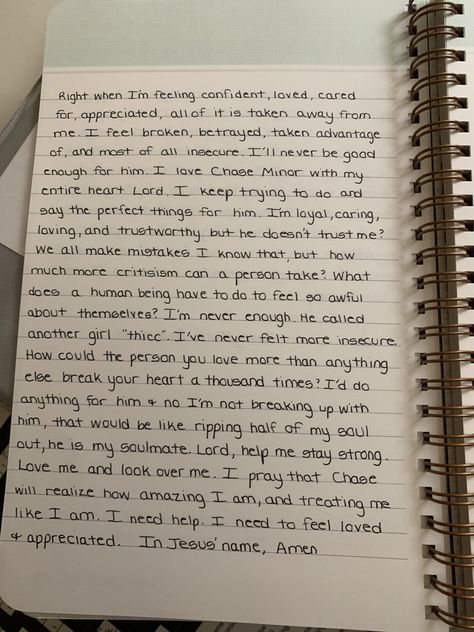 Right when I'm feeling confident, loved, cared
for, appreciated, all of it is taken away from
me. I feel broken, betrayed, taken advantage
of, and most of all insecure. I'll never be good
enough for him. I love Chase Minor with my
entire heart Lord. I keep trying to do and
say the perfect things for him. I'm loyal, caring,
loving, and trustworthy but he doesn't trust me?
We all make mistakes I know that, but how
much more critisism can a person take? What
does a human being have to do to feel so awful
about themselves? I'm never enough. He called
another girl "thicc". I've never felt more insecure.
How could the person you love more than anything
else break your heart a thousand times? I'd do
anything for him & no I'm not breaking up with
him, that would be like ripping half of my soul
out, he is my soulmate. Lord, help me stay strong.
Love me and look over me. I pray that Chase
will realize how amazing I am, and treating me
like I am. I need help. I need to feel loved
& appreciated. In Jesus' name, Amen